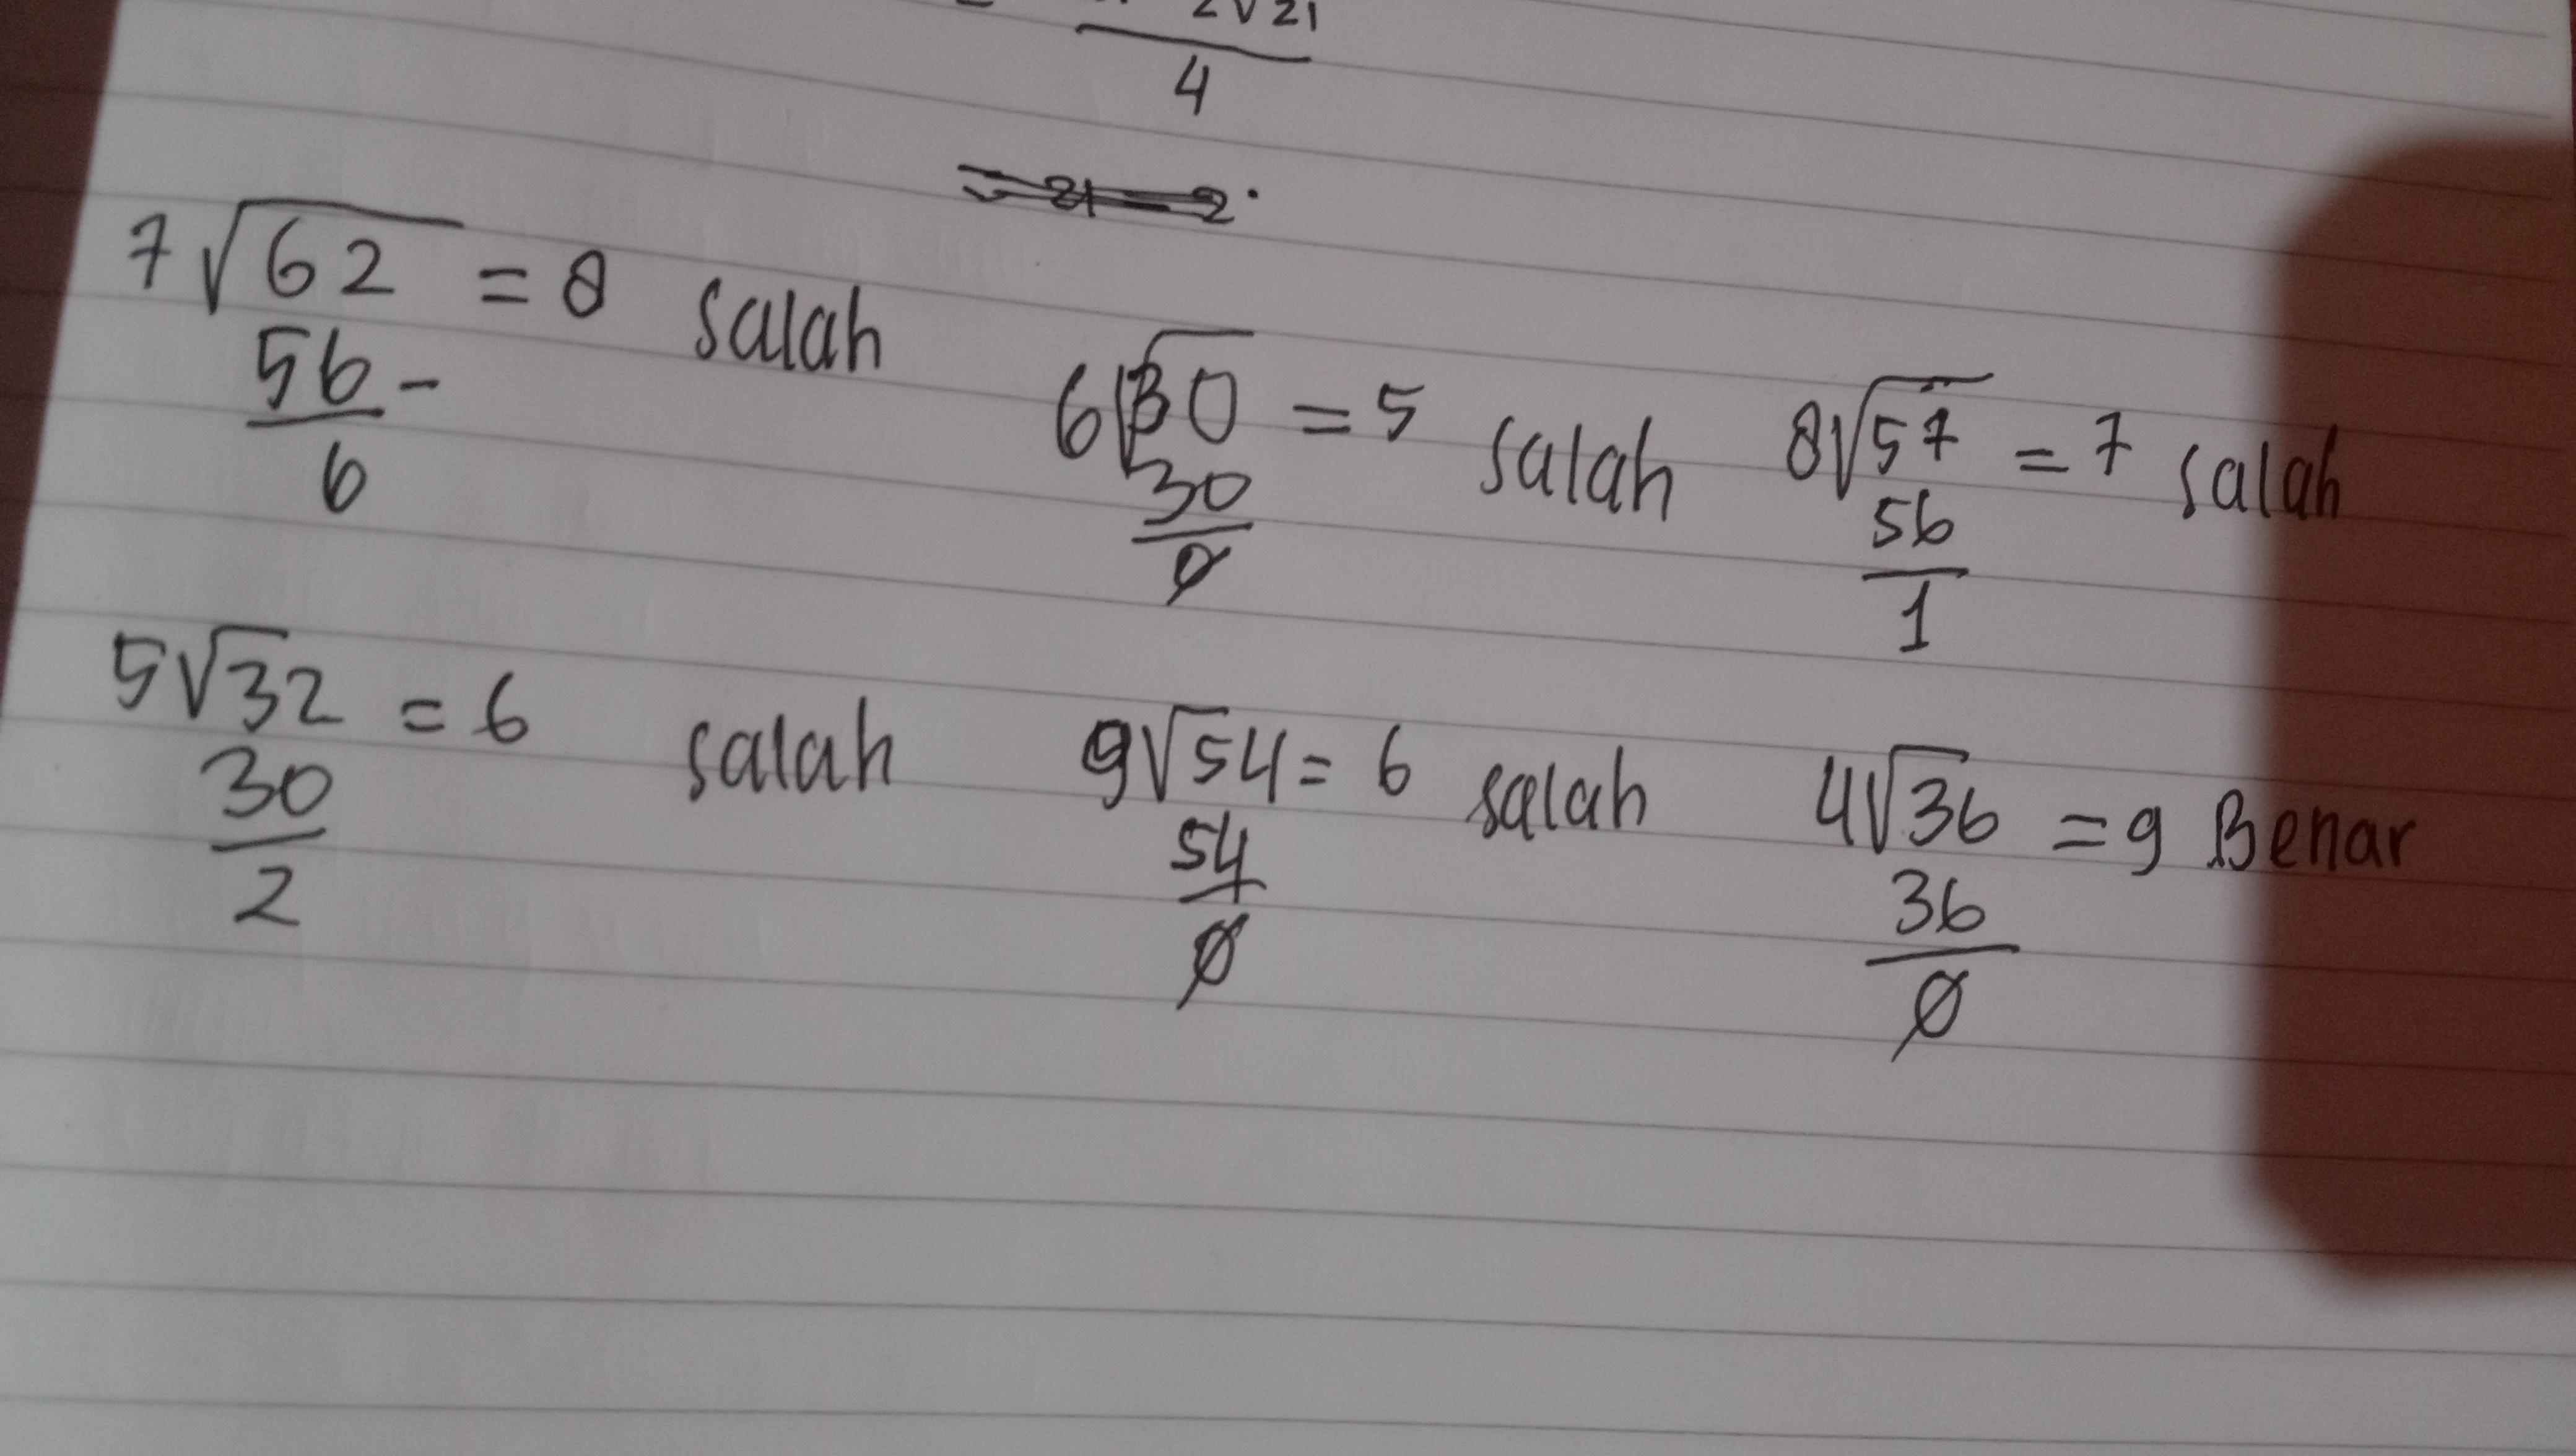 2√21
4
7√62 = 8 salah
56 -
6
6√30 = 5 salah
30
0
8√57 = 7 salah
56
1
5√32 = 6 salah
30
2
9√54 = 6 salah
54
0
4√36 = 9 Benar
36
0